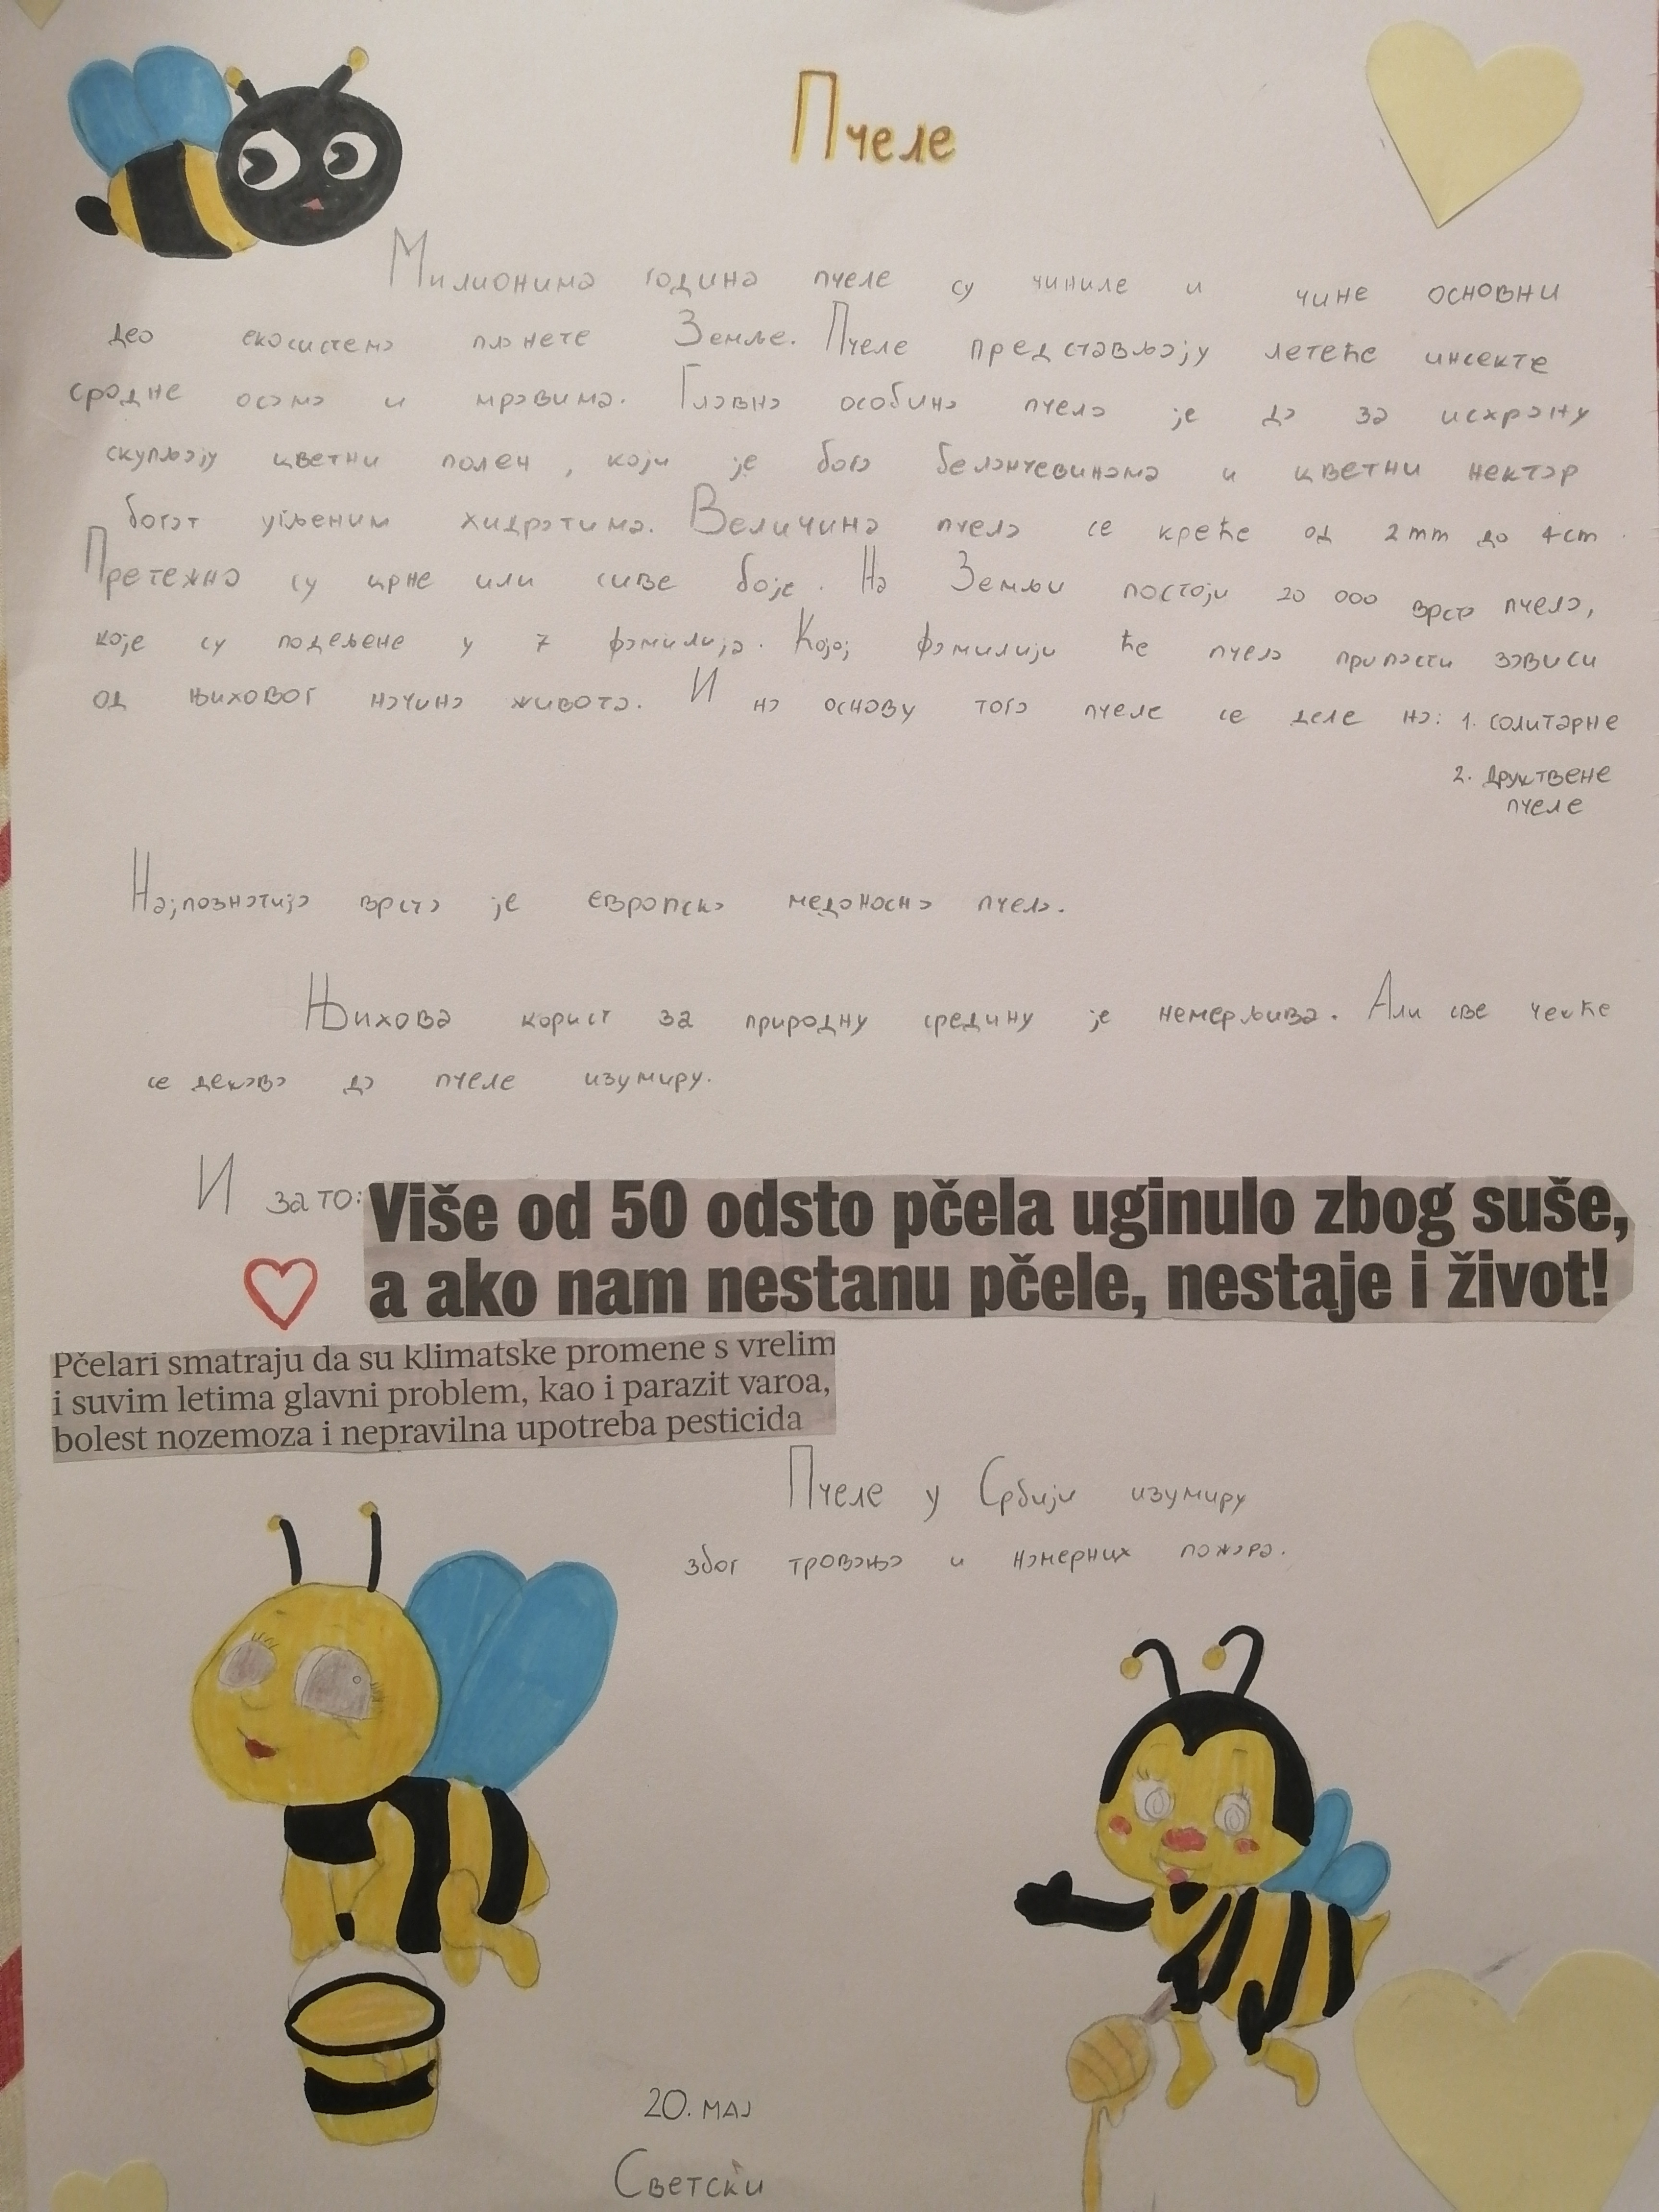 Пчеле
Милионима година пчеле су чиниле и чине основни
део екосистема планете Земље. Пчеле представљају летеће инсекте
сродне осама и мравима. Главна особина пчела је да за исхрану
скупљају цветни полен, који је бога беланчевинама и цветни нектар
богат угљеним хидратима. Величина пчела се креће од 2mm до 4cm.
Претежно су црне или сиве боје. На Земљи постоји 20 000 врста пчела,
које су подељене у 7 фамилија. Којој фамилији ће пчела припасти зависи
од њиховог начина живота. И на основу тога пчеле се деле на: 1. солитарне
2. Друштвене
пчеле
Најпознатија врста је европска медоносна пчела.
Њихова корист за природну средину је немерљива. Али све чешће
се дешава да пчеле изумиру.
И за то: Više od 50 odsto pčela uginulo zbog suše,
a ako nam nestanu pčele, nestaje i život!
Pčelari smatraju da su klimatske promene s vrelim
i suvim letima glavni problem, kao i parazit varoa,
bolest nozemoza i nepravilna upotreba pesticida
Пчеле у Србији изумиру
због тровања и намерних пожара.
20. мај
Светски